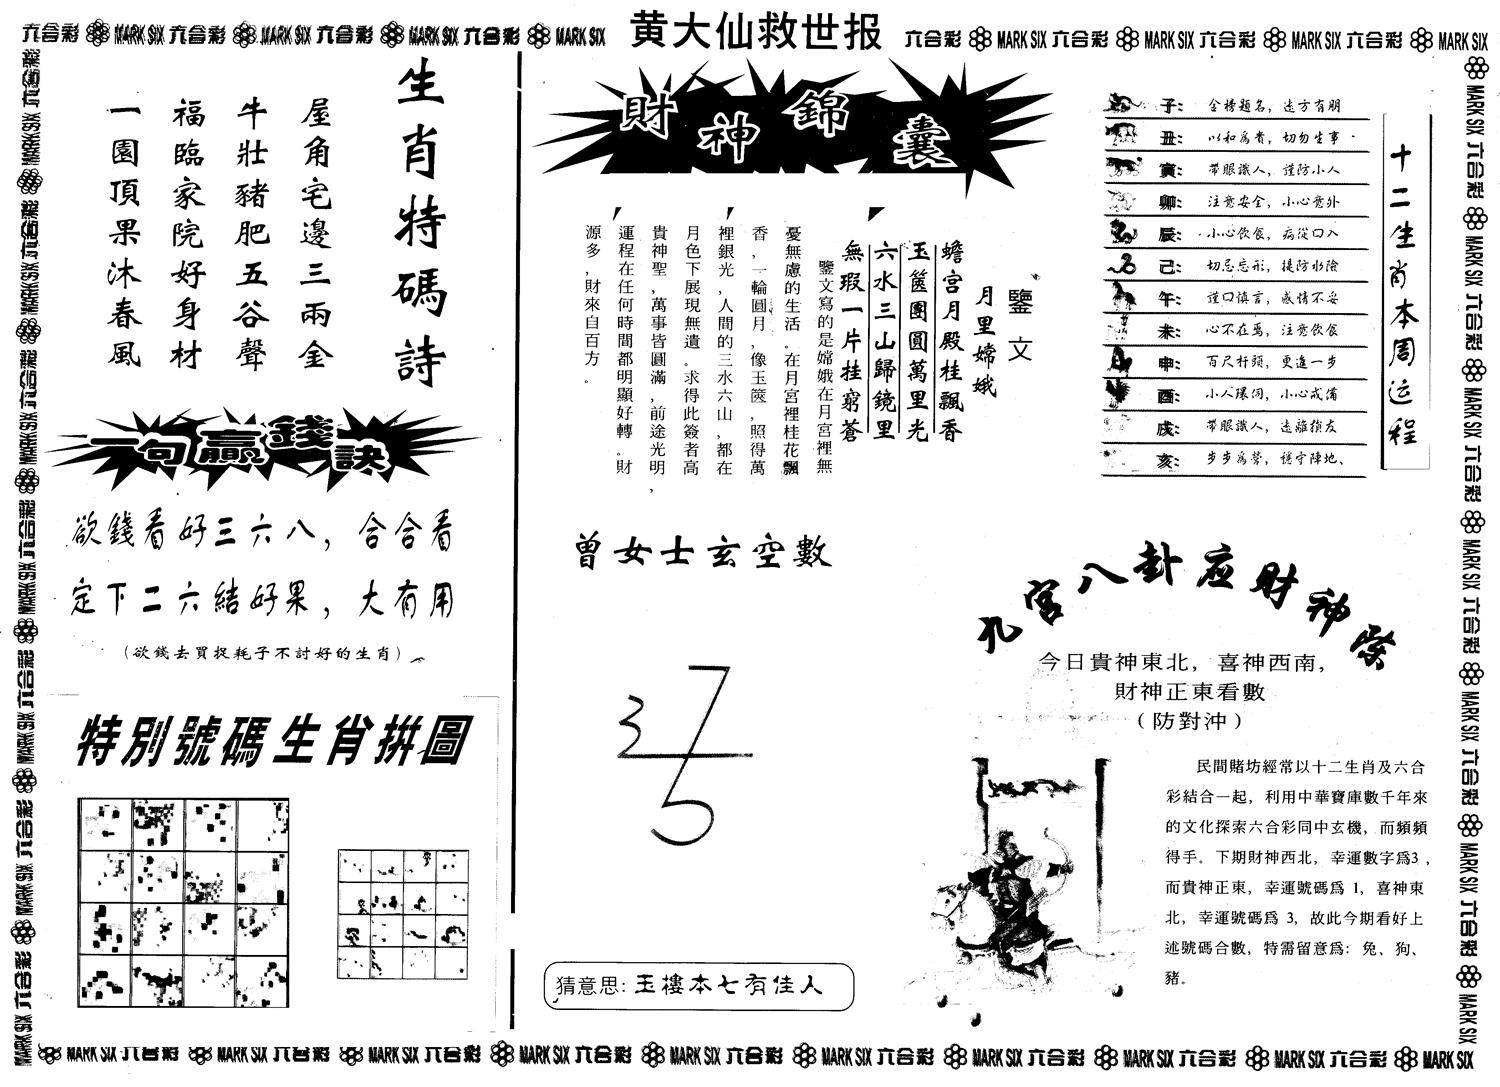 黄大仙救世报
六合彩 MARK SIX 六合彩 MARK SIX 六合彩 MARK SIX 六合彩 MARK SIX
六合彩 MARK SIX 六合彩 MARK SIX 六合彩 MARK SIX 六合彩 MARK SIX
生肖特碼詩
屋角宅邊三兩金
牛壯豬肥五谷聲
福臨家院好身材
一園頂果沐春風
一句贏錢訣
欲錢看好三六八，合合看
定下二六結好果，大有用
(欲錢去買捉耗子不討好的生肖)
特別號碼生肖拼圖
財神錦囊
鑒文
月里嫦娥
蟾宫月殿桂飄香
玉篋團圓萬里光
六水三山歸鏡里
無瑕一片挂窮蒼
鑒文寫的是嫦娥在月宫裡無
憂無慮的生活。在月宫裡桂花飄
香，一輪圓月，像玉篋，照得萬
裡銀光，人間的三水六山，都在
月色下展現無遺。求得此簽者高
貴神聖，萬事皆圓滿，前途光明，
運程在任何時間都明顯好轉。財
源多，財來自百方。
曾女士玄空數
猜意思: 玉樓本七有佳人
十二生肖本周运程
子: 金榜題名，遠方有朋
丑: 以和為貴，切勿生事
寅: 帶眼識人，謹防小人
卯: 注意安全，小心意外
辰: 小心飲食，病從口入
己: 切忌忘形，提防水險
午: 謹口慎言，感情不妥
未: 心不在焉，注意飲食
申: 百尺杆頭，更進一步
酉: 小人環伺，小心戒備
戌: 帶眼識人，遠離損友
亥: 步步為營，穩守陣地、
九宮八卦应財神際
今日貴神東北，喜神西南，
財神正東看數
（防對沖）
民間賭坊經常以十二生肖及六合
彩結合一起，利用中華寶庫數千年來
的文化探索六合彩同中玄機，而頻頻
得手。下期財神西北，幸運數字爲3，
而貴神正東，幸運號碼爲 1，喜神東
北，幸運號碼爲 3，故此今期看好上
述號碼合數，特需留意爲：兔、狗、
豬。
MARK SIX 六合彩 MARK SIX 六合彩 MARK SIX 六合彩 MARK SIX 六合彩 MARK SIX 六合彩 MARK SIX 六合彩 MARK SIX 六合彩 MARK SIX 六合彩 MARK SIX 六合彩 MARK SIX